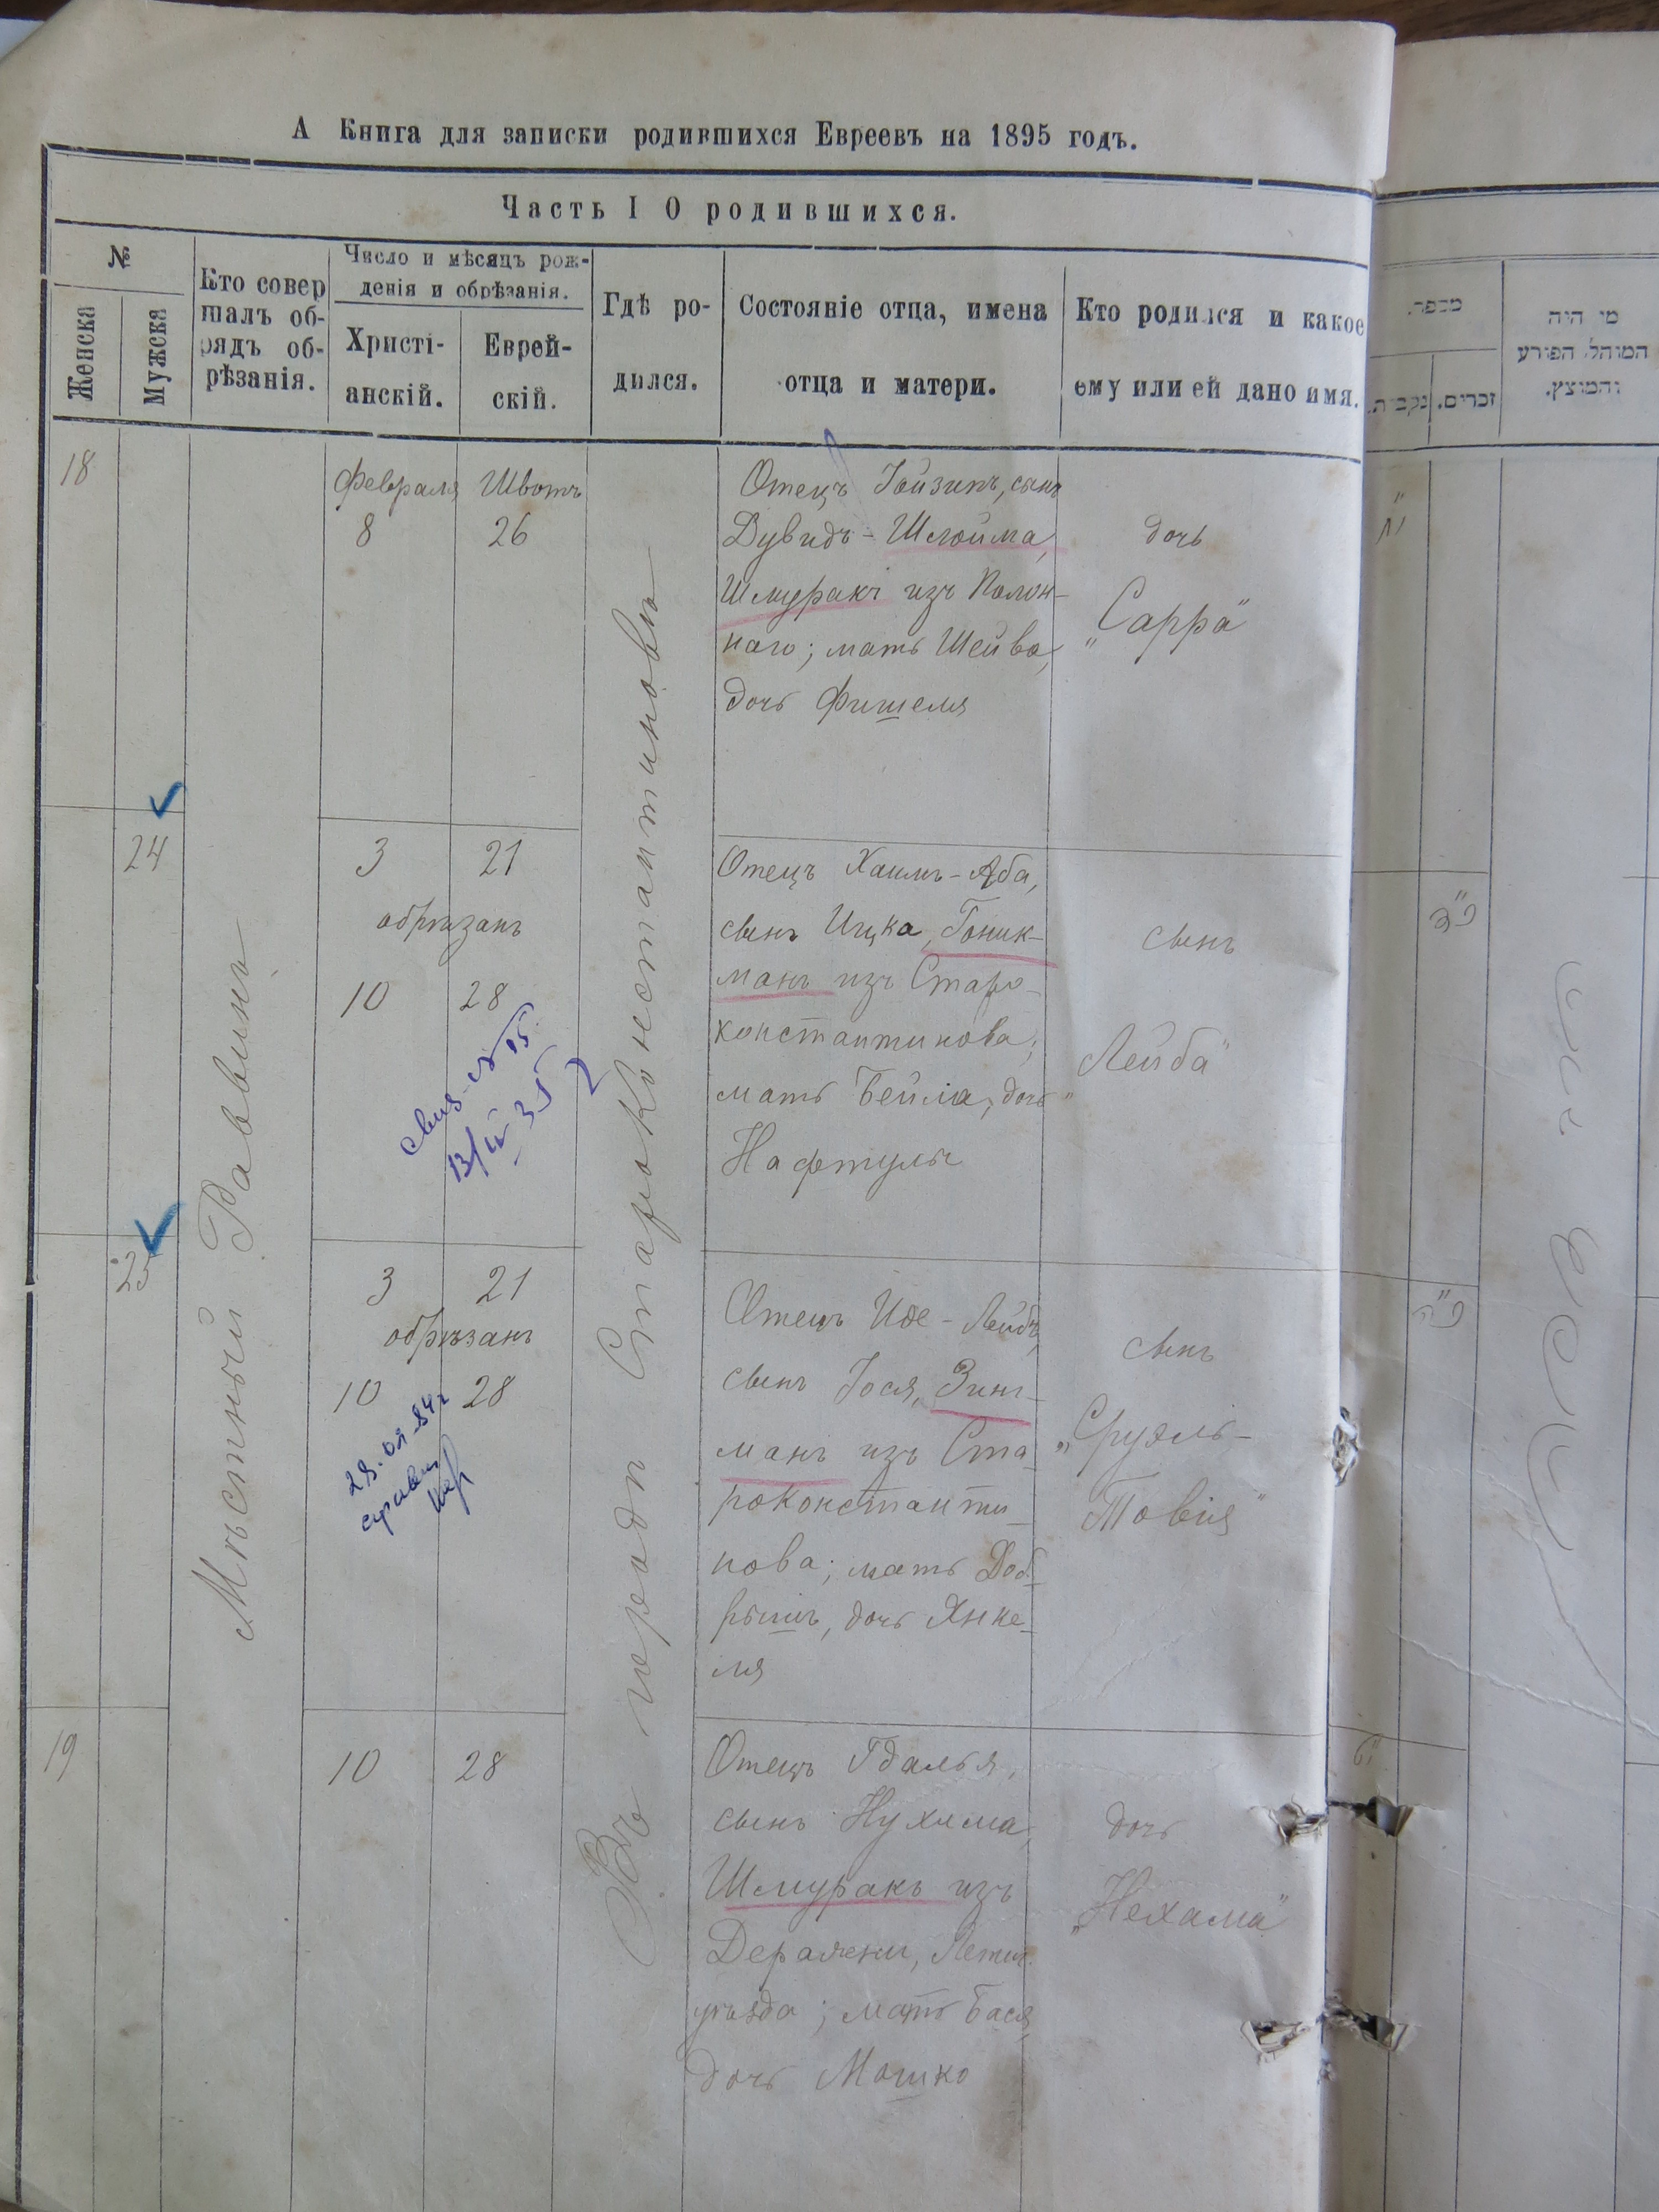 А Книга для записки родившихся Евреевъ на 1895 годъ.
Часть I О родившихся.
№
Женска
Мужска
Кто совер
шалъ об-
рядъ об-
рѣзанія.
Число и мѣсяцъ рож-
денія и обрѣзанія.
Христі-
анскій.
Еврей-
скій.
Гдѣ ро-
дился.
Состояніе отца, имена
отца и матери.
Кто родился и какое
ему или ей дано имя.
מספר.
נקבות.
זכרים.
מי היה
המוהל, הפורע
והמוצץ.
Мѣстный Раввинъ
Въ городѣ Староконстантиновѣ
18
Февраля Швотъ
8 26
Отецъ Іойзипъ, сынъ
Дувидъ-Шлойма,
Шмуракъ изъ Полон-
наго; мать Шейва,
дочь Фишеля
дочь
„Сарра"
י"ח
24
3 21
обрѣзанъ
10 28
Отецъ Хаимъ-Аба,
сынъ Ицка, Гоник-
манъ изъ Старо-
константинова;
мать Бейла, дочь
Нафтулы
сынъ
„Лейба"
כ"ד
25
3 21
обрѣзанъ
10 28
Отецъ Иде-Лейбъ,
сынъ Іося, Зинг-
манъ изъ Ста-
роконстанти-
нова; мать Доб-
рышъ, дочь Янке-
ля
сынъ
„Сруль-
Товія"
כ"ה
19
10 28
Отецъ Гдалья,
сынъ Нухима,
Шмуракъ изъ
Деражни, Летич.
уѣзда; мать Бася,
дочь Мошко
дочь
„Нехама"
י"ט